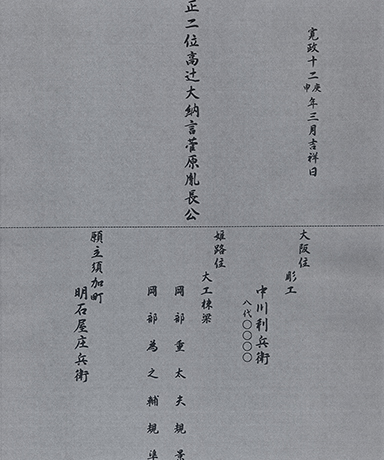 寛政十二庚申年三月吉祥日
正二位高辻大納言菅原胤長公
大阪住 彫工
中川利兵衛
八代〇〇〇〇
姫路住 大工棟梁
岡部重太夫規景
岡部為之輔規準
願主須加町
明石屋庄兵衛